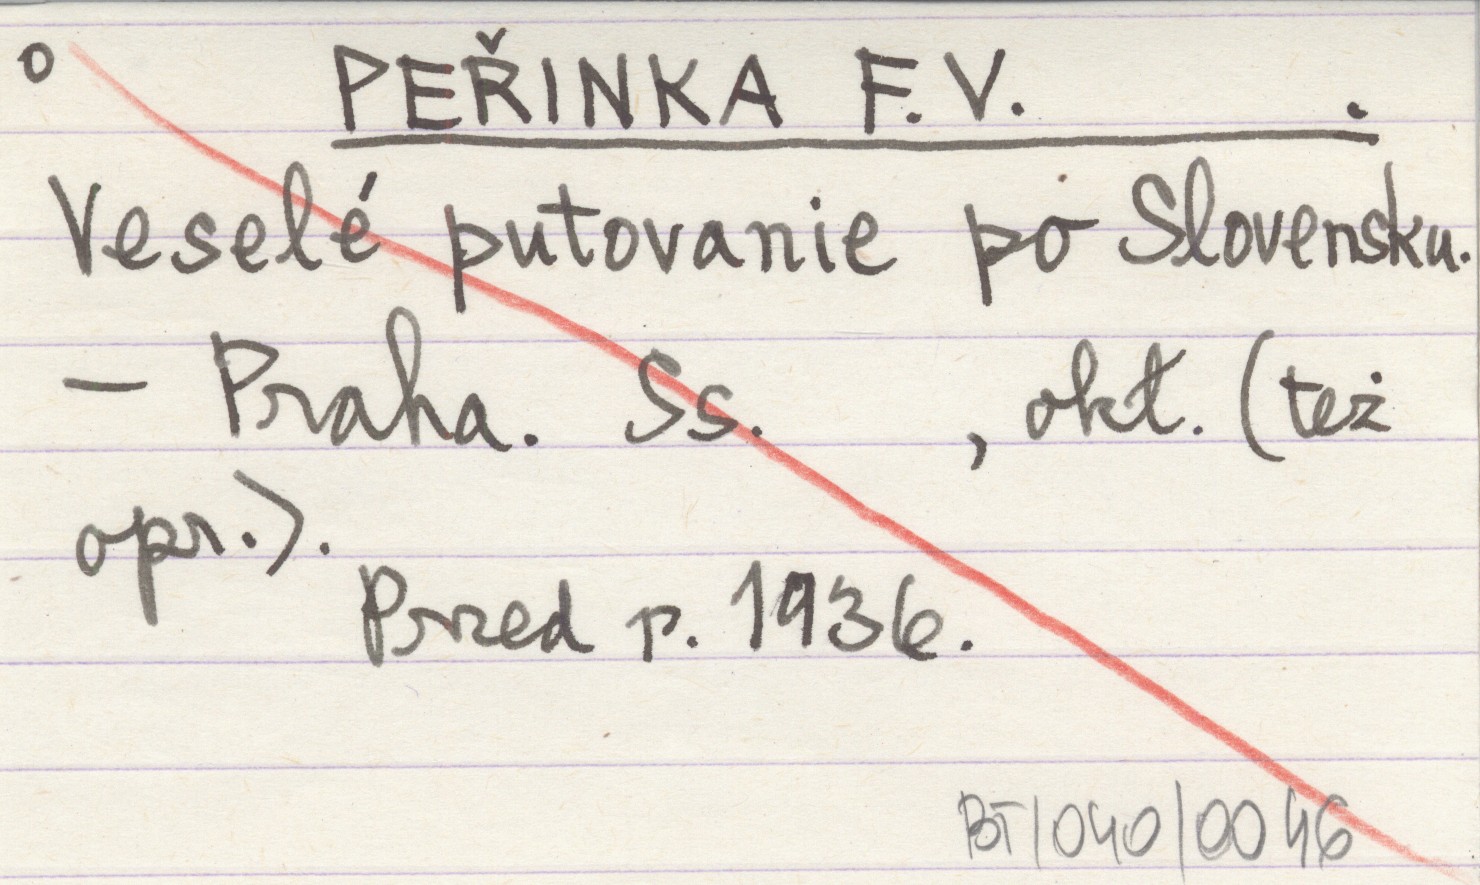 o PEŘINKA F.V. .
Veselé putovanie po Slovensku.
– Praha. Ss. , okt. (też
opr.).
Przed r. 1936.
BT/040/0046